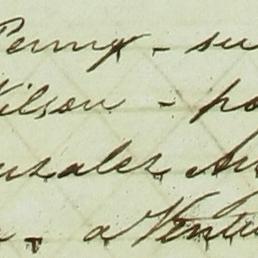 Penny - su
Wilson - po
nzalez An
- a Ventu